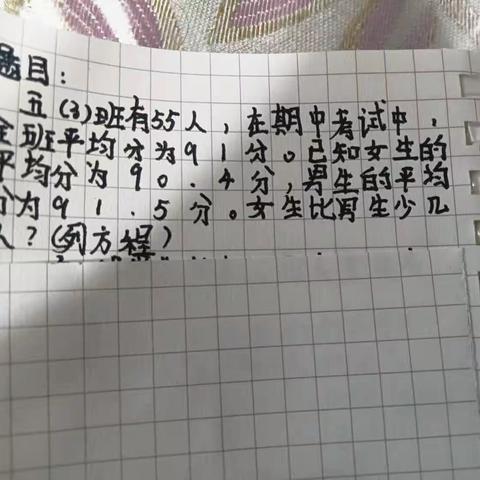 题目：
五(3)班有55人，在期中考试中，
全班平均分为91分。已知女生的
平均分为90.4分，男生的平均
分为91.5分。女生比男生少几
人？(列方程)